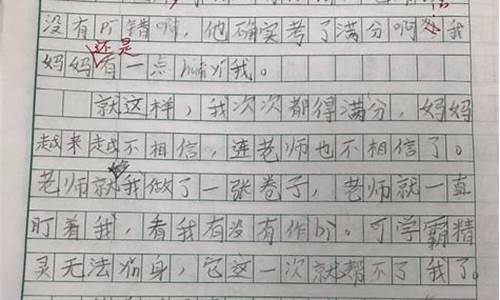 没有听错啊，他确实考了满分啊，我
还是
妈妈有一点huái yí我。
就这样，我次次都得满分，妈妈
越来越不相信，连老师也不相信了。
老师就给我做了一张卷子，老师就一直
盯着我，看我有没有作bì。可学霸精
灵无法分身，它这一次就帮不了我了。